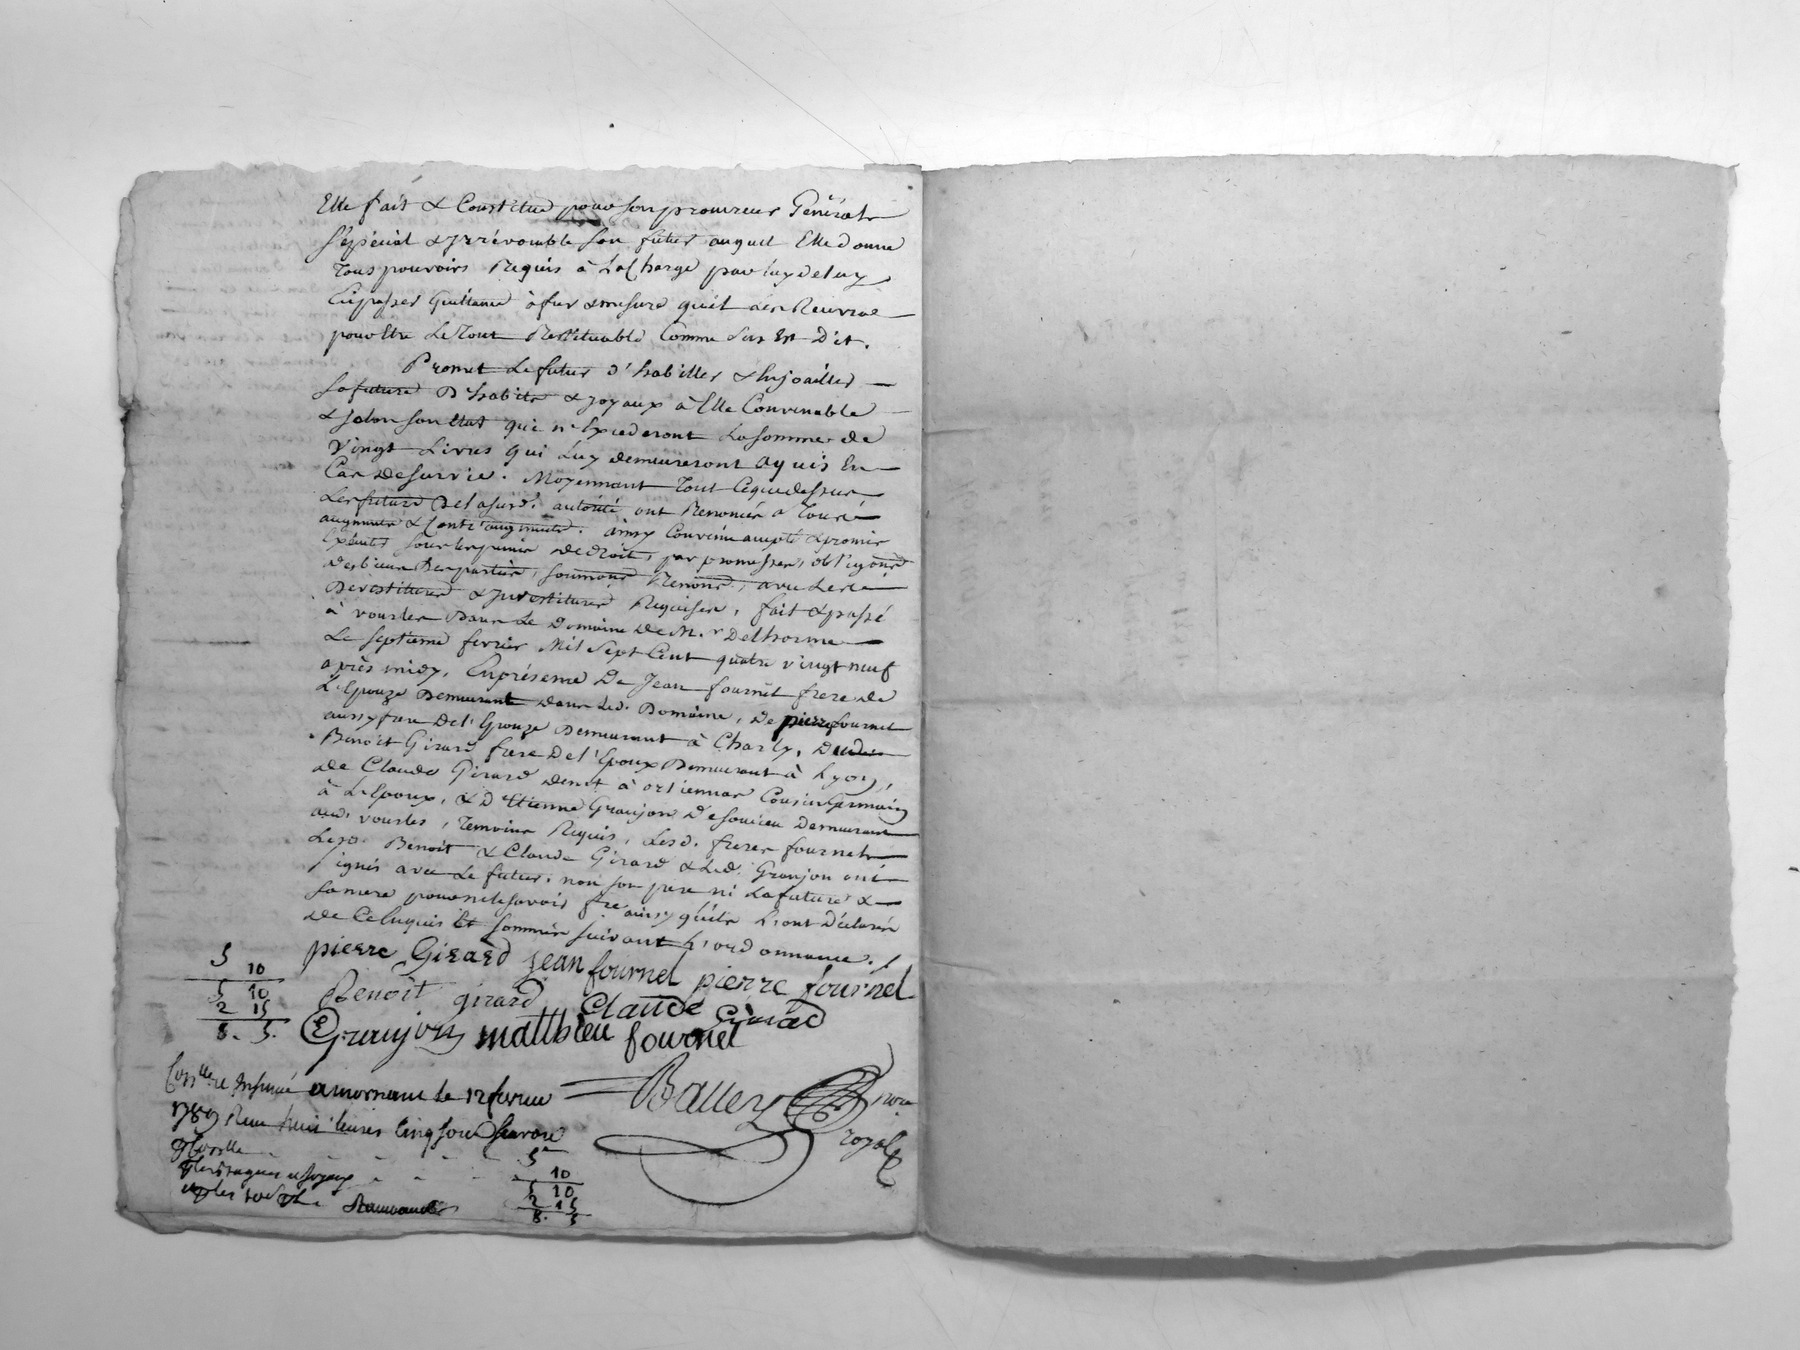 Elle fait & Constitue pour son procureur Général
Spécial & Irrévocable son futur auquel Elle donne
Tous pouvoirs Requis à la Charge par luy de luy
En passer Quittance à fur & mesure qu'il les Recevrae
pour Etre Le Tout Restituable Comme Sus Est Dit.
Promet Le futur d'habiller & Enjoailler
La future D'habits & Joyaux à Elle Convenable
& selon son Etat qui n'Excederont La somme de
Vingt Livres qui Luy demeureront aquis En
Cas De survie. Moyennant Tout Ce que dessus
Les futurs De lasusd. autorité ont Renoncés a Tous
augments & Contr'augments. ainsy Convenu accepté & promis
Exécuter sous les peines de droit, par promesses, obligons
des biens Des parties, soumons Renons, avec Les
Devestitures & Investitures Requises, fait & passé
à vourles Dans Le Domaine de M.r Delhorme
Le septieme fevrier Mil Sept Cent quatre vingt neuf
après midy, En présence De Jean fournel frere de
L'Epouze Demeurant dans Led. Domaine, de pierre fournel
aussy frere De l'Epouze Demeurant à Charly, De
Benoit Girard frere De l'Epoux Demeurant à Lyon,
de Claude Girard demt à orlienas Cousin Germain
à L'Epoux, & D'Etienne Granjon De soucieu Demeurant
aud. vourles, Temoins Requis, Lesd. freres fournels
Lesd. Benoit & Claude Girard & Led. Granjon ont
signés avec Le futur, non son pere ni La future &
sa mere pour ne le savoir fre ainsy qu'ils L'ont Déclarés
de Ce Enquis Et sommés suivant L'ordonnance.
5
10
5 10
2 15
8. 5.
pierre Girard jean fournel pierre fournel
Benoit girard Claude Girard
E Granjon matthieu fournel
Conlle et Insinué a mornant le 12 fevrier
1789 Reçu huit livres Cinq sous Savoir
Balley nore
royal
5
10
5 10
2 15
8. 5
et joyaux